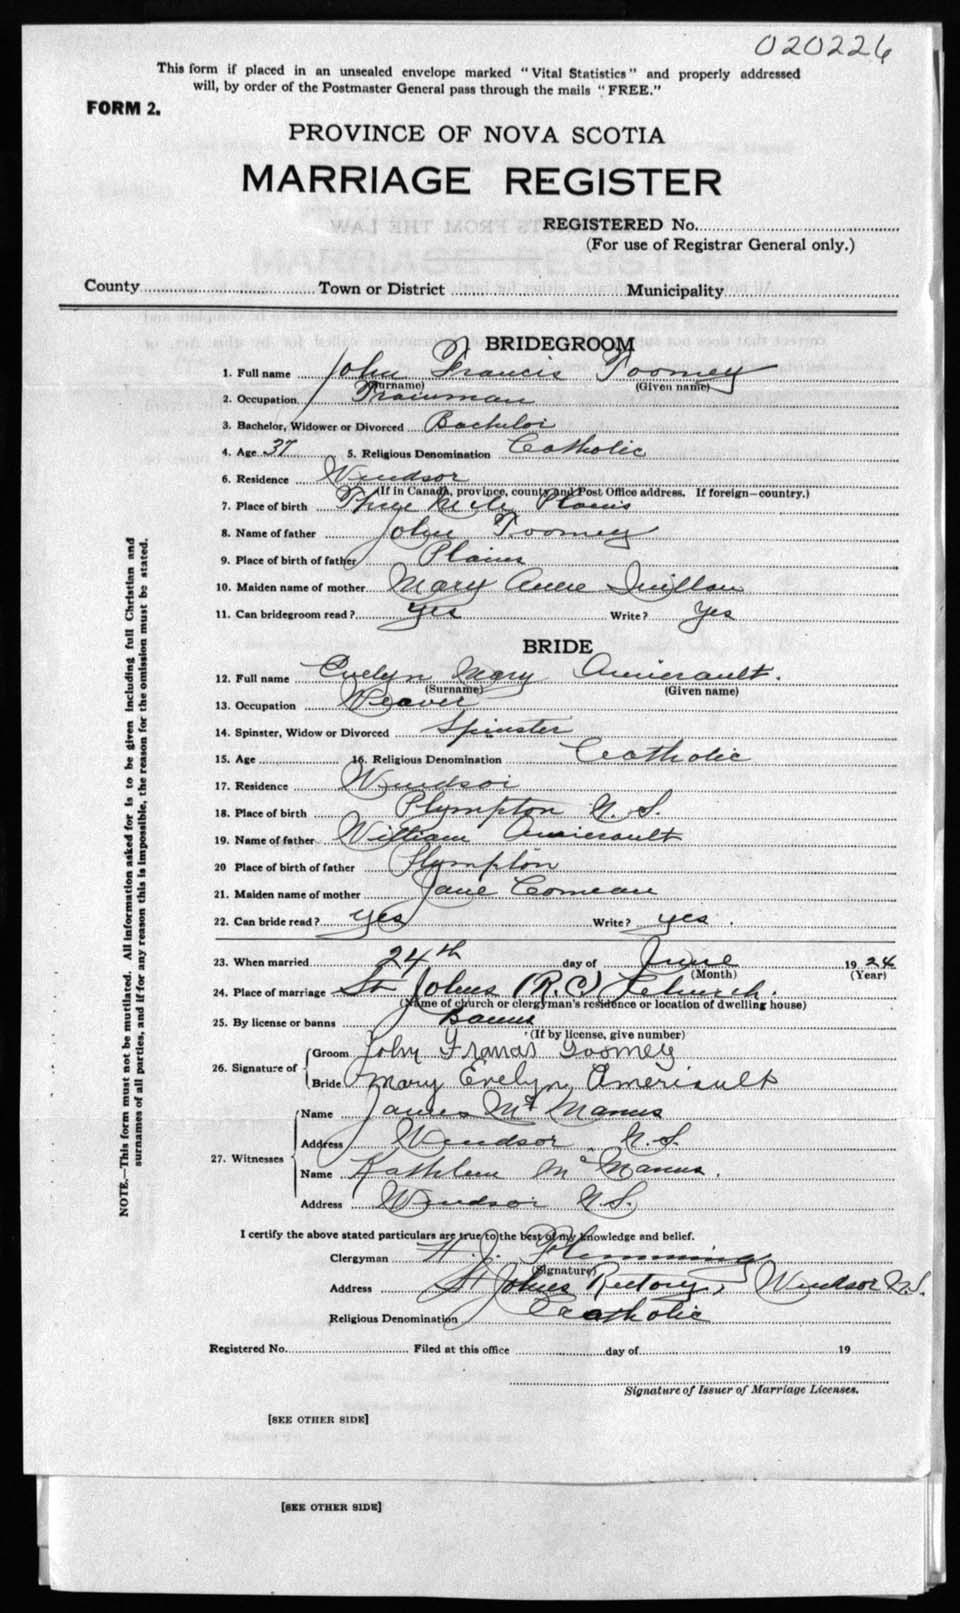 020226
This form if placed in an unsealed envelope marked "Vital Statistics" and properly addressed
will, by order of the Postmaster General pass through the mails "FREE."
FORM 2.
PROVINCE OF NOVA SCOTIA
MARRIAGE REGISTER
REGISTERED No.
(For use of Registrar General only.)
County Town or District Municipality
BRIDEGROOM
1. Full name John Francis Toomey
(Surname) (Given name)
2. Occupation Trainman
3. Bachelor, Widower or Divorced Bachelor
4. Age 37 5. Religious Denomination Catholic
6. Residence Windsor
(If in Canada, province, county and Post Office address. If foreign—country.)
7. Place of birth Three Mile Plains
8. Name of father John Toomey
9. Place of birth of father Plains
10. Maiden name of mother Mary Anne
11. Can bridegroom read? Yes Write? Yes
BRIDE
12. Full name Evelyn Mary Amierault.
(Surname) (Given name)
13. Occupation Weaver
14. Spinster, Widow or Divorced Spinster
15. Age 16. Religious Denomination Catholic
17. Residence Windsor
18. Place of birth Plympton N. S.
19. Name of father William Amierault
20 Place of birth of father Plympton
21. Maiden name of mother Jane Comeau
22. Can bride read? Yes Write? yes.
23. When married 24th day of June 1924
(Month) (Year)
24. Place of marriage St Johns (R.C) Church.
(Name of church or clergyman's residence or location of dwelling house)
25. By license or banns Banns
(If by license, give number)
26. Signature of
Groom John Francis Toomey
Bride Mary Evelyn Ameriault
27. Witnesses
Name James McManus
Address Windsor N.S.
Name Kathleen McManus.
Address Windsor N.S.
I certify the above stated particulars are true to the best of my knowledge and belief.
Clergyman H. J. Flemming
(Signature)
Address St Johns Rectory, Windsor N.S.
Religious Denomination Catholic
Registered No. Filed at this office day of 19
Signature of Issuer of Marriage Licenses.
[SEE OTHER SIDE]
[SEE OTHER SIDE]
NOTE.—This form must not be mutilated. All information asked for is to be given including full Christian and
surnames of all parties, and if for any reason this is impossible, the reason for the omission must be stated.